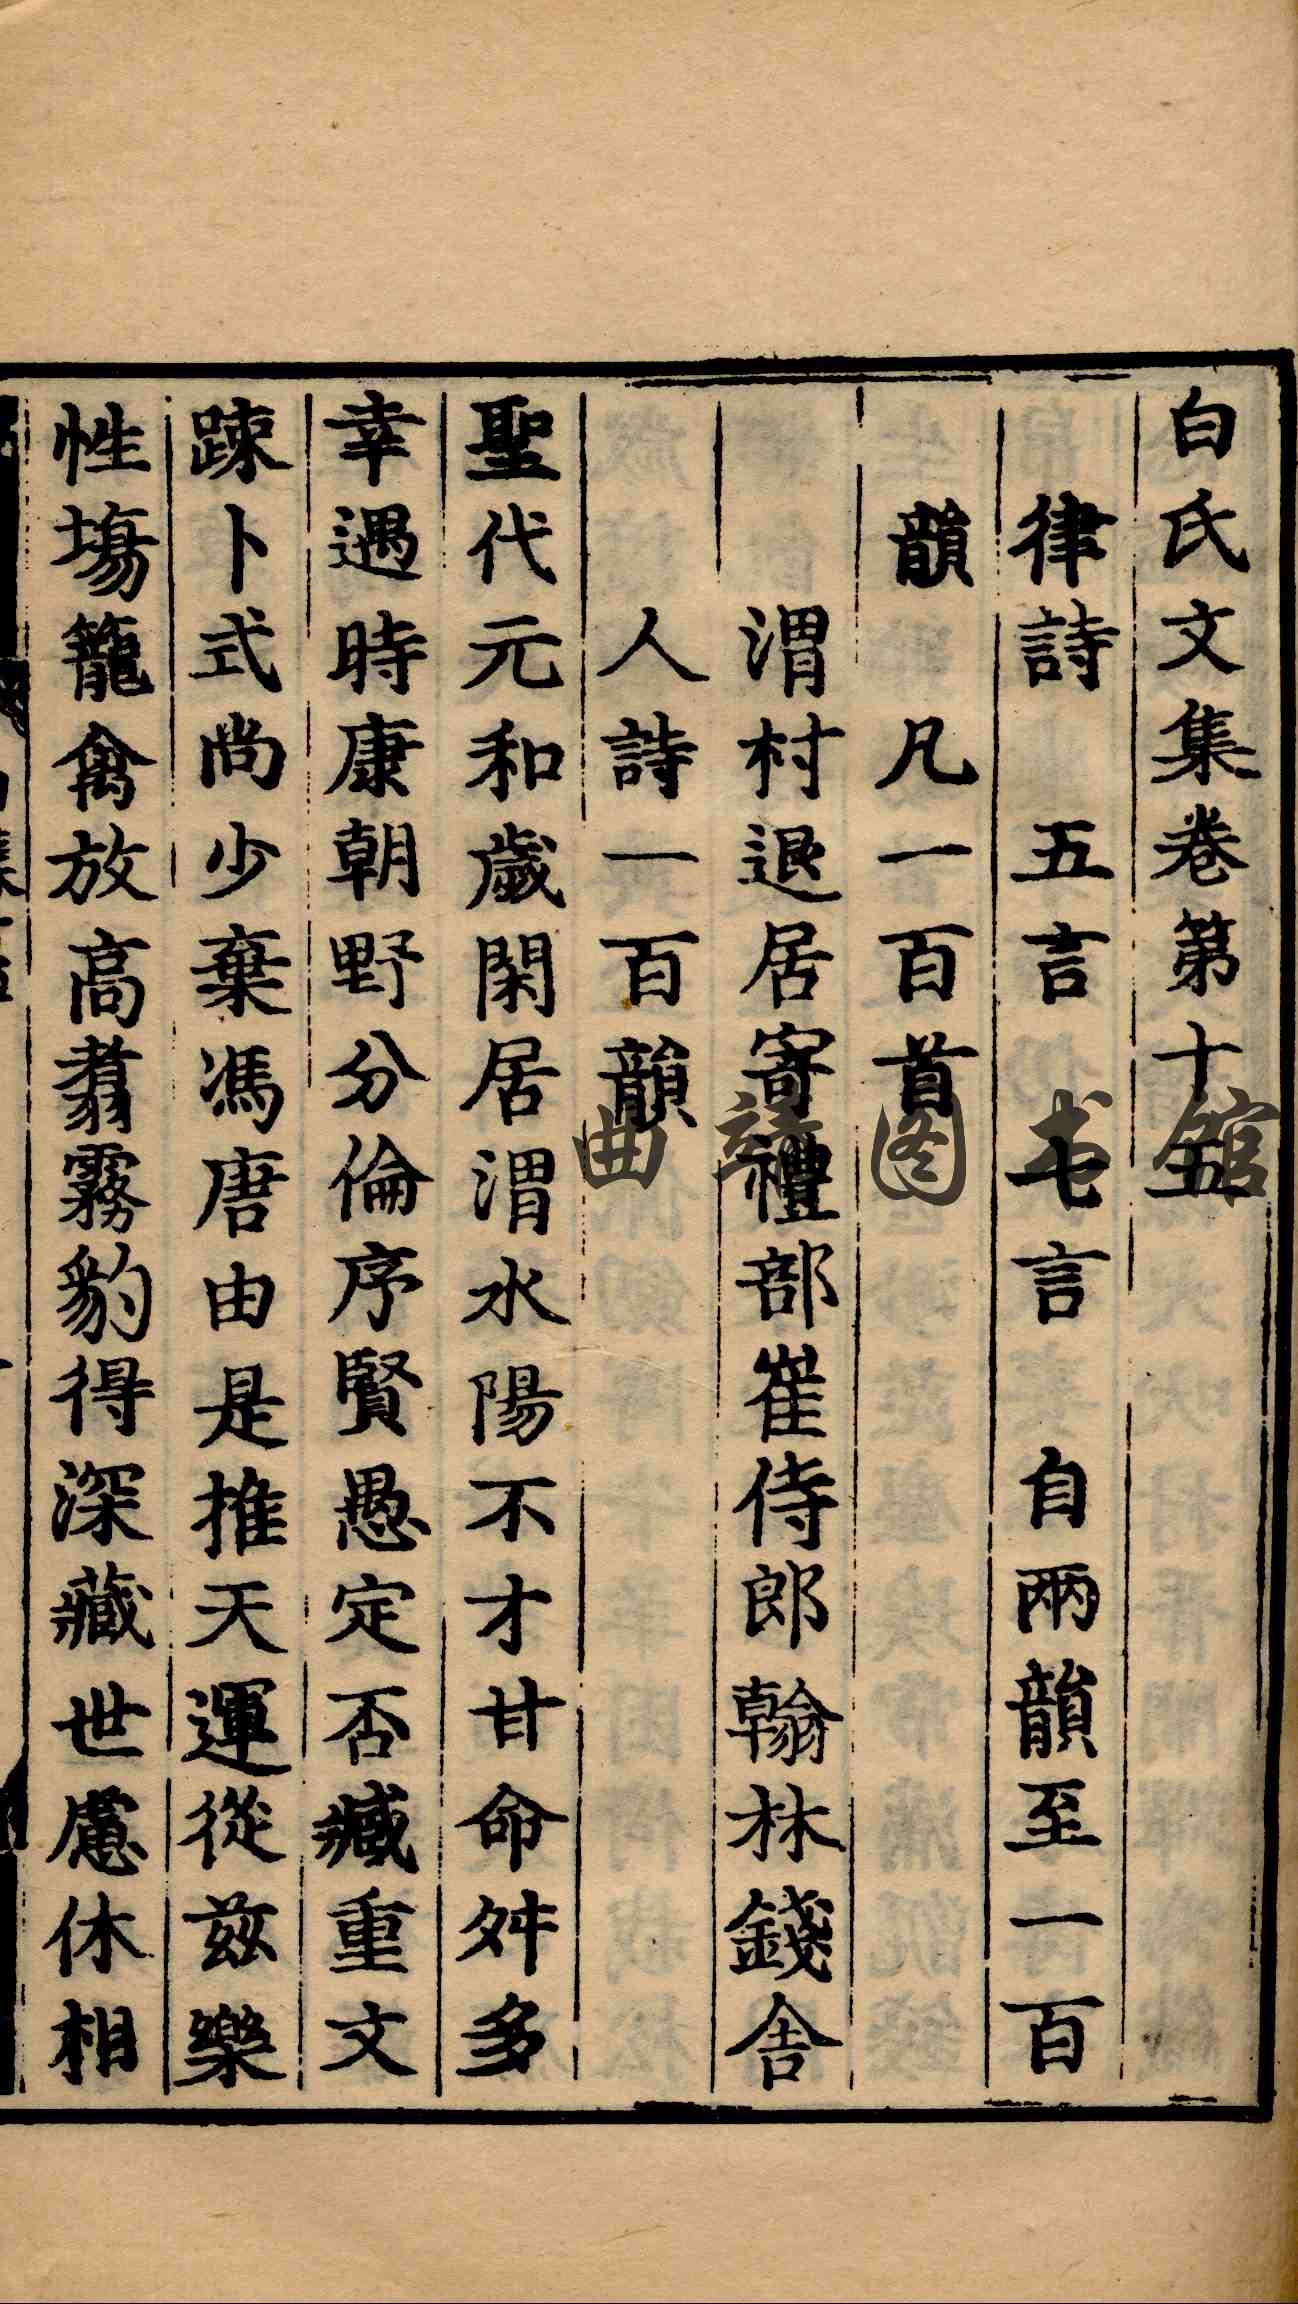 白氏文集卷第十五
律詩 五言 七言 自兩韻至一百
韻 凡一百首
渭村退居寄禮部崔侍郎翰林錢舍
人詩一百韻
聖代元和歲閑居渭水陽不才甘命舛多
幸遇時康朝野分倫序賢愚定否臧重文
疎卜式尚少棄馮唐由是推天運從玆樂
性塲籠禽放高翥霧豹得深藏世慮休相